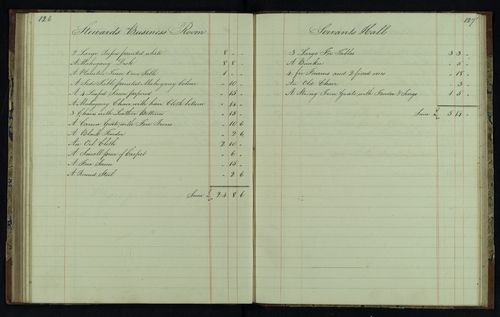 126
Stewards Business Room
2 Large Presses painted white 8 " "
A Mahogany Desk 8 8 "
A Table 1 " "
A Side Table painted Mahogany Colour " 10 "
A 4 Leafed Screen papered " 15 "
A Mahogany Chair with hair Cloth bottom " 14 "
3 Chairs with Leather Bottoms " 18 "
A Carron Grate with Fire Irons " 10 6
A Black Fender " 2 6
An Oil Cloth 2 10 "
A Small piece of Carpet " 6 "
A Screen " 15 "
A Round Stool " 2 6
Sum £ 24 8 6
127
Servants Hall
3 Large Fir Tables 3 3 "
A Bunker " 5 "
4 fir Forms and 2 fixed ones " 18 "
An Old Chair " 3 "
A Strong Iron Grate with Fender & Tongs 1 5 "
Sum £ 5 14 "